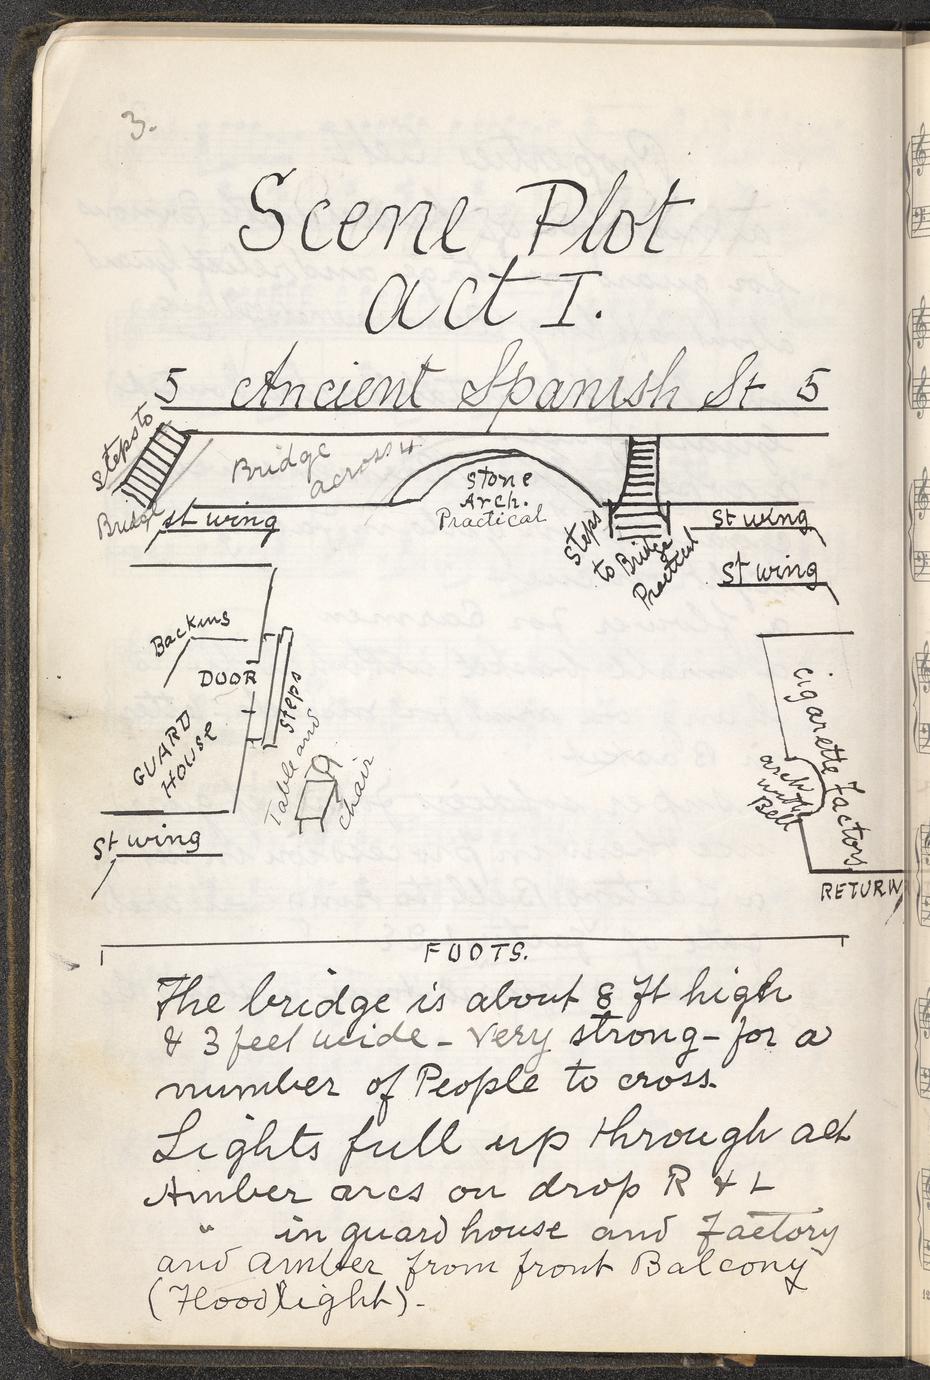 3.
Scene Plot
Act I.
5 Ancient Spanish St 5
Steps to
Bridge
Bridge
across 4
Stone
Arch.
Practical
Steps
to Bridge
Practical
st wing
St wing
St wing
Backing
DOOR
Steps
GUARD
HOUSE
Table and
Chair
St wing
Cigarette Factory
arch
with
Bell
RETURN
FOOTS.
The bridge is about 8 ft high
& 3 feet wide - very strong - for a
number of People to cross.
Lights full up through act
Amber arcs on drop R & L
" in guard house and Factory
and Amber from front Balcony
(Flood light).